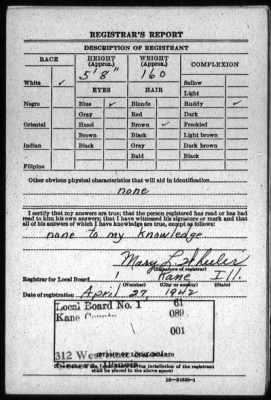 REGISTRAR'S REPORT
DESCRIPTION OF REGISTRANT
RACE HEIGHT (Approx.) WEIGHT (Approx.) COMPLEXION
5' 8" 160
White ✓ Sallow
EYES HAIR Light
Negro Blue ✓ Blonde Ruddy ✓
Gray Red Dark
Oriental Hazel Brown ✓ Freckled
Brown Black Light brown
Indian Black Gray Dark brown
Bald Black
Filipino
Other obvious physical characteristics that will aid in identification
none
I certify that my answers are true; that the person registered has read or has had
read to him his own answers; that I have witnessed his signature or mark and that
all of his answers of which I have knowledge are true, except as follows:
none to my knowledge
Mary L. Wheeler
(Signature of registrar)
Registrar for Local Board 1 Kane Ill.
(Number) (City or county) (State)
Date of registration April 27, 1942
Local Board No. 1 61
Kane 089
001
312 West
(STAMP OF LOCAL BOARD)
Illinois
(The stamp of the Local Board having jurisdiction of the registrant
shall be placed in the above space)
16—21630-1